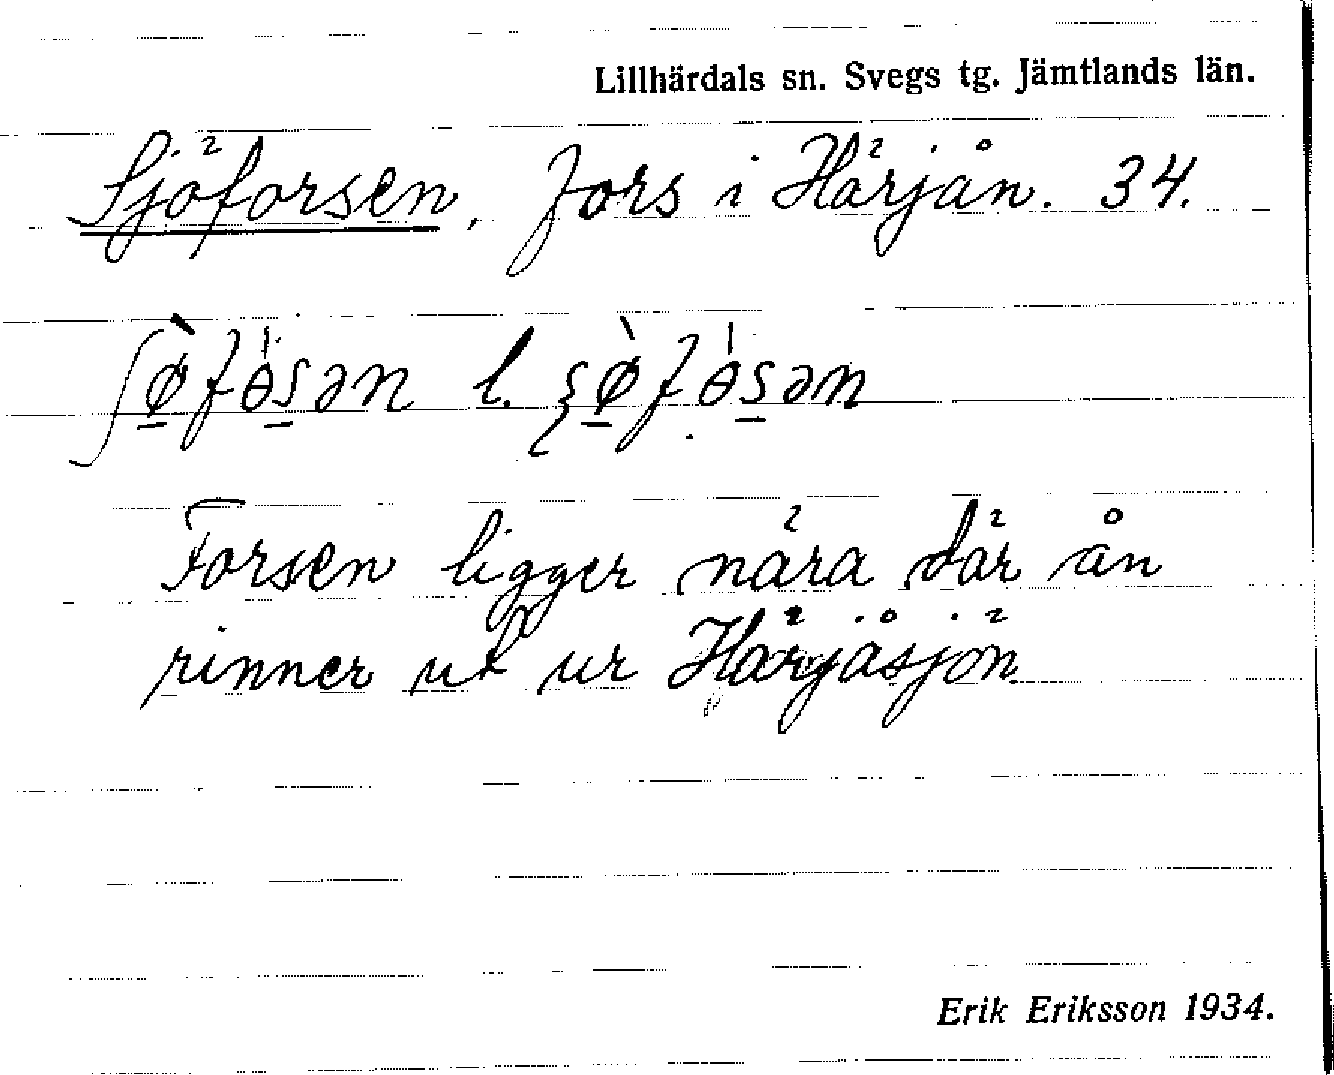 Lillhärdals sn. Svegs tg. Jämtlands län.
Sjöforsen, fors i Härjån. 34.
ʃø̱̀fɵ̍s̱ən l. ʂø̱̀fɵ̍s̱ən
Forsen ligger nära där ån
rinner ut ur Härjåsjön
Erik Eriksson 1934.